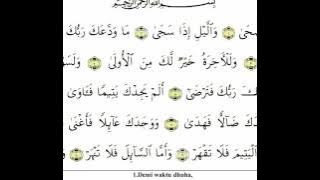 بِسْمِ اللَّهِ الرَّحْمَٰنِ الرَّحِيمِ
ضُحَىٰ وَاللَّيْلِ إِذَا سَجَىٰ مَا وَدَّعَكَ رَبُّكَ
وَلَلْآخِرَةُ خَيْرٌ لَّكَ مِنَ الْأُولَىٰ وَلَسَوْ
كَ رَبُّكَ فَتَرْضَىٰ أَلَمْ يَجِدْكَ يَتِيمًا فَـَٔاوَىٰ
كَ ضَآلًّا فَهَدَىٰ وَوَجَدَكَ عَآئِلًا فَأَغْنَىٰ
الْيَتِيمَ فَلَا تَقْهَرْ وَأَمَّا السَّآئِلَ فَلَا تَنْهَرْ
1.Demi waktu dhuha,